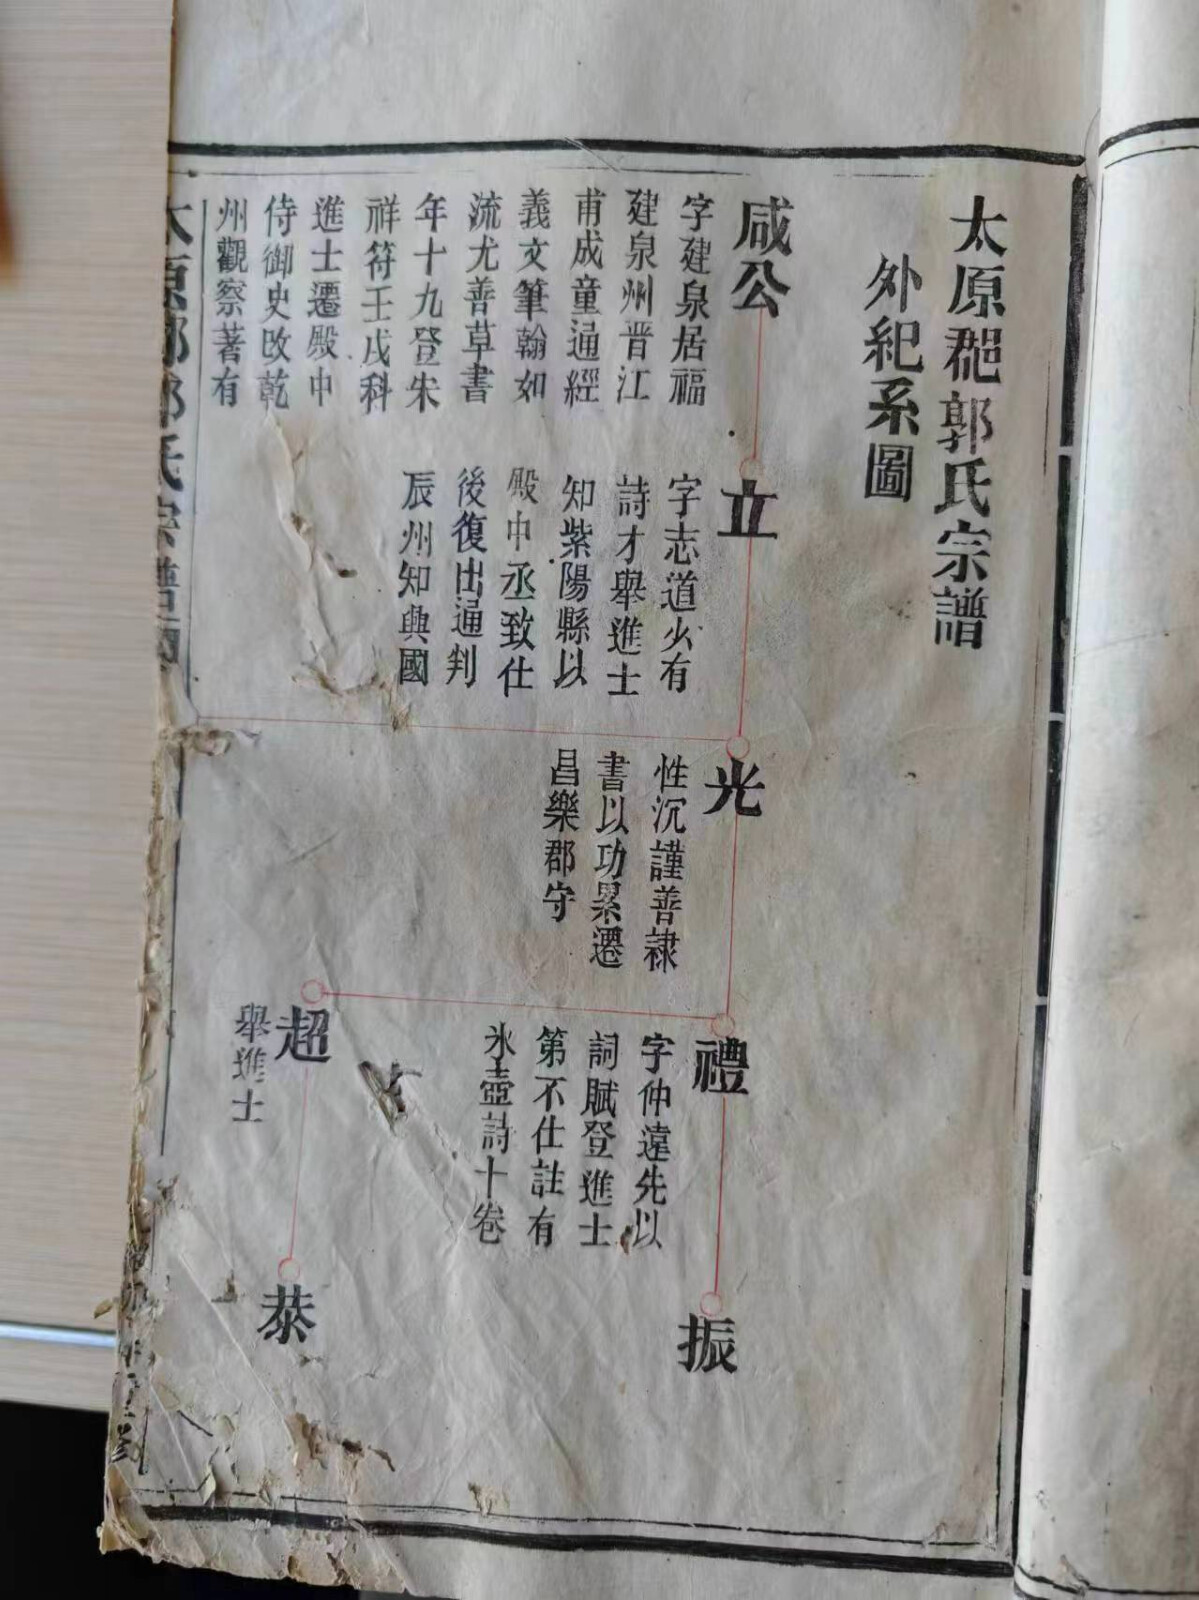 太原郡郭氏宗譜
外紀系圖
咸公
字建泉居福
建泉州晋江
甫成童通經
義文筆翰如
流尤善草書
年十九登朱
祥符壬戌科
進士遷殿中
侍御史改乾
州觀察著有
立
字志道少有
詩才舉進士
知紫陽縣以
殿中丞致仕
後復出通判
辰州知興國
光
性沉謹善隸
書以功累遷
昌樂郡守
禮
字仲遠先以
詞賦登進士
第不仕註有
氷壺詩十卷
超
舉進士
振
恭
太原郡郭氏宗譜